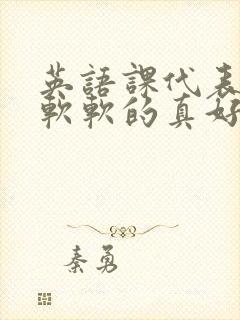 英語課代表
軟軟的真好
秦勇